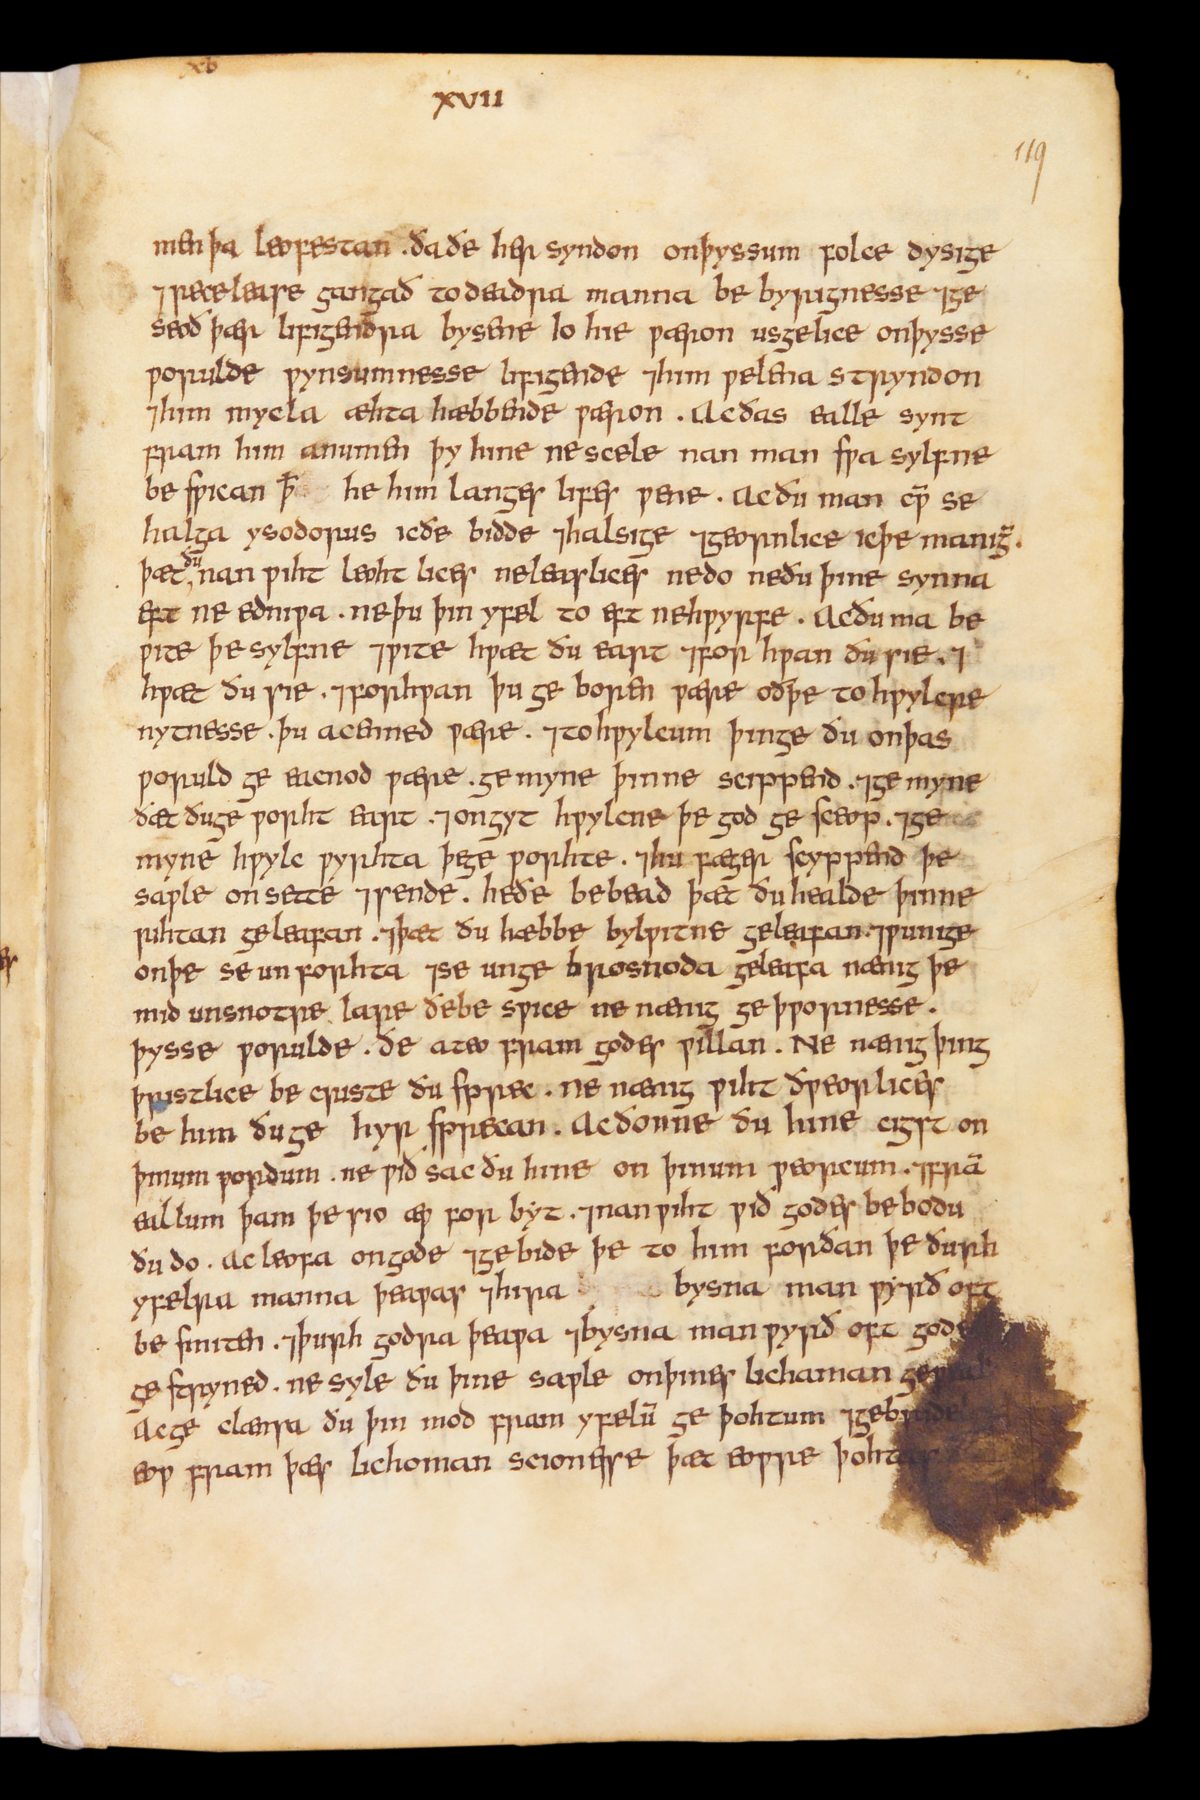 xb
xvii
119
men þa leofestan . ða ðe her syndon on þyssum folce dysige
⁊ recelease gangað to deadra manna be byrignesse ⁊ ge
seoð þær lifigendra bysene lo hie wæron us gelice on þysse
worulde wynsumnesse lifigende ⁊ him welena stryndon
⁊ him mycla æhta hæbbende wæron . Ac ðas ealle synt
fram him anumen þy hine ne scele nan man swa sylfne
be swican þ̄ he him langes lifes wene . Ac ðu man cƿ̄ se
halga ysodorus ic ðe bidde ⁊ halsige ⁊ geornlice ic þe manig̅ .
þæt ðu nan wiht leohtlices ne leaslices ne do ne ðu þine synna
eft ne edniwa . ne þu þin yfel to eft ne hwyrfe . Ac ðu ma be
wite þe sylfne ⁊ wite hwæt ðu eart ⁊ for hwan ðu sie . ⁊
hwæt ðu sie . ⁊ for hwan þu ge boren wære oðþe to hwylcre
nytnesse . þu acenned wære . ⁊ to hwylcum þinge ðu on þas
woruld ge eacnod wære . ge myne þinne scippend . ⁊ ge myne
ðæt ðu ge worht eart . ⁊ ongyt hwylcne þe god ge sceop . ⁊ ge
myne hwylc wyrhta þe ge worhte . ⁊ hu fæger scyppend þe
sawle on sette ⁊ sende . he ðe be bead þæt ðu healde þinne
rihtan geleafan . ⁊ þæt ðu hæbbe bylwitne geleafan . ⁊ wunige
on þe se un forhta ⁊ se unge brosnoda geleafa nænig þe
mid unsnotre lare ðe be swice ne nænig ge þwornesse .
þysse worulde . ðe ateo fram godes willan . Ne nænig þing
þristlice be criste ðu sprec . ne nænig wiht ðweorlices
be him ðu ge hyr sprecan . Ac ðonne ðu hine cigst on
þinum wordum . ne wið sac ðu hine on þinum weorcum . ⁊ frā
eallum þam þe sio æw for byt . ⁊ nan wiht wið godes be bodu
ðu do . Ac leofa on gode ⁊ gebide þe to him forðan þe ðurh
yfelra manna þeawas ⁊ hira bysna man wyrð oft
be smiten . ⁊ þurh godra þeawa ⁊ bysna man wyrð oft
ge stryned . ne syle ðu þine sawle on þines lichaman
Ac ge clænsa ðu þin mod fram yfelū ge þohtum
eow fram þæs lichoman scionesse þæt eowre